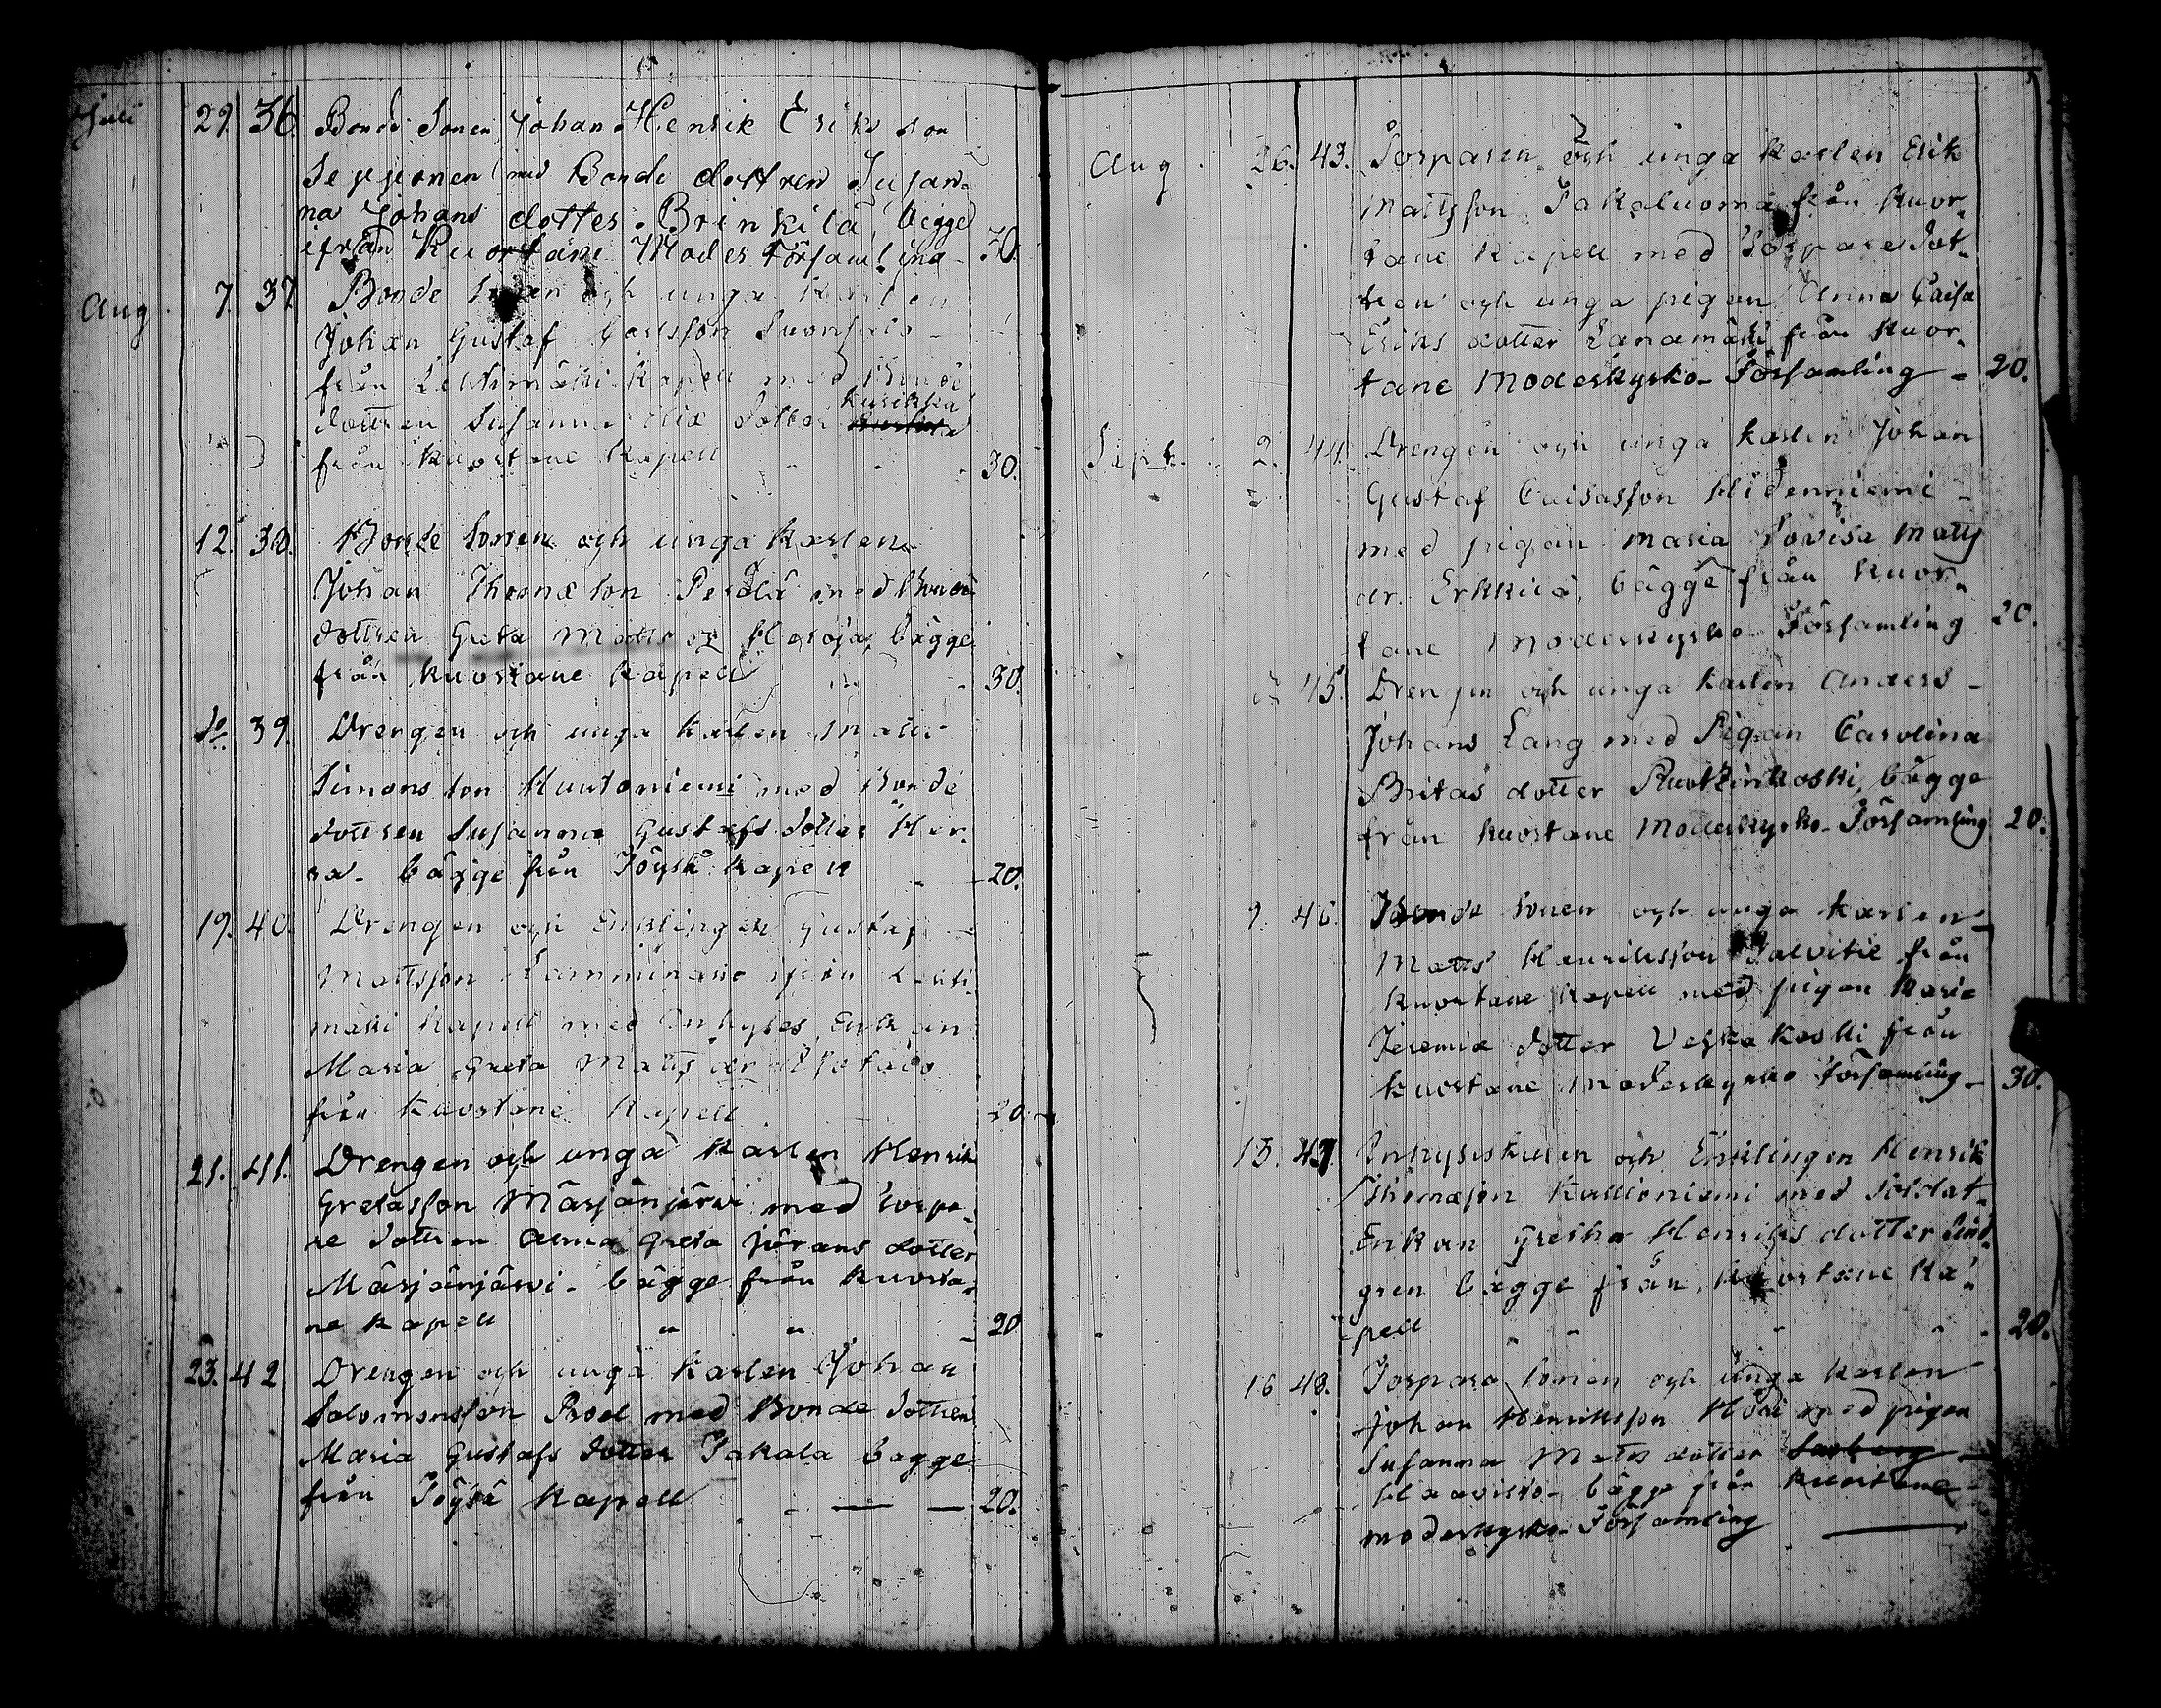 Juli 29. 36. Bonde Sonen Johan Henrik Eriks son
Sepponen med Bonde dottren Susan-
na Johans dotter Brinkilä, bägge
ifrån Kuortane Moder Församling - 30.
Aug. 7. 37. Bonde Sonen och unga Karlen
Johan Gustaf Carlsson Suonsalo
från Lehtimäki Kapell med Bonde
dottren Susanna dotter Kurikka
från Kuortane Kapell - - 30.
12. 38. Bonde Sonen och unga Karlen
Johan Thomæ son Perälä med Bonde
dottren Greta Matts dr Heroja, bägge
från Kuortane Kapell - 30.
do. 39. Drengen och unga Karlen Matts
Simons son Huutoniemi med Bonde
dottren Susanna Gustafs dotter Her-
ra - bägge från Töysä Kapell - - 20.
19. 40. Drengen och Enklingen Gustaf
Mattsson Lamminaho från Lehti-
mäki Kapell med Inhyses Enkan
Maria Greta Matts dr
från Kuortane Kapell 20.
21. 41. Drengen och unga Karlen Henrik
Gretasson Märjänjärvi med Torpa-
re dottren Anna Greta Jörans dotter
Märjänjärvi - bägge från Kuorta-
ne Kapell " " - 20
23. 42 Drengen och unga Karlen Johan
Salomonsson Rood med Bonde dottren
Maria Gustafs dotter Jakala bagge
från Töysä Kapell - — — 20.
Aug. 26. 43. Torparen och unga Karlen Erik
Mattsson Jakaluoma från Kuor-
tane Kapell med Torpare dot-
tren och unga pigan Anna Caisa
Eriks dotter Lanamäki från Kuor-
tane Moderkyrko- Församling - 20.
Sept. 2. 44. Drengen och unga Karlen Johan
Gustaf Caisasson Hidenniemi -
med pigan Maria Lovisa Matts
dr. Erkkilä, bägge från Kuor-
tane Moderkyrko Församling 20.
45. Drengen och unga Karlen Anders -
Johans Lang med Pigan Carolina
Britas dotter Ruotzinkoski, bägge
från Kuortane Moderkyrko- Församling 20.
9. 46. Bonde Sonen och unga Karlen -
Matts Henriksson Salvitie från
Kuortane Kapell med pigan Maria
Jeremiæ dotter Veskakoski från
Kuortane Moderkyrko Församling - 30.
13. 47. Inhyseskarlen och Enklingen Henrik
Thomæson Kallioniemi med Soldat-
Enkan Gretha Henriks dotter Lind-
gren bägge från Kuortane Ka-
pell " " " " - 20.
16 48. Torpare Sonen och unga Karlen
Johan Henriksson Hori med pigan
Susanna Matts dotter
Haavisto - bägge från Kuortane -
moderkyrko- Församling —